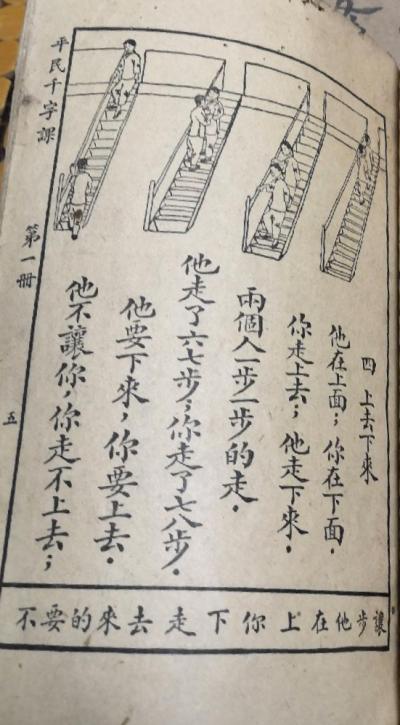 平民千字課
第一冊
五
四 上去下來
他在上面；你在下面．
你走上去；他走下來．
兩個人一步一步的走．
他走了六七步；你走了七八步．
他要下來，你要上去．
他不讓你，你走不上去；
讓步他在上你下走去來的要不